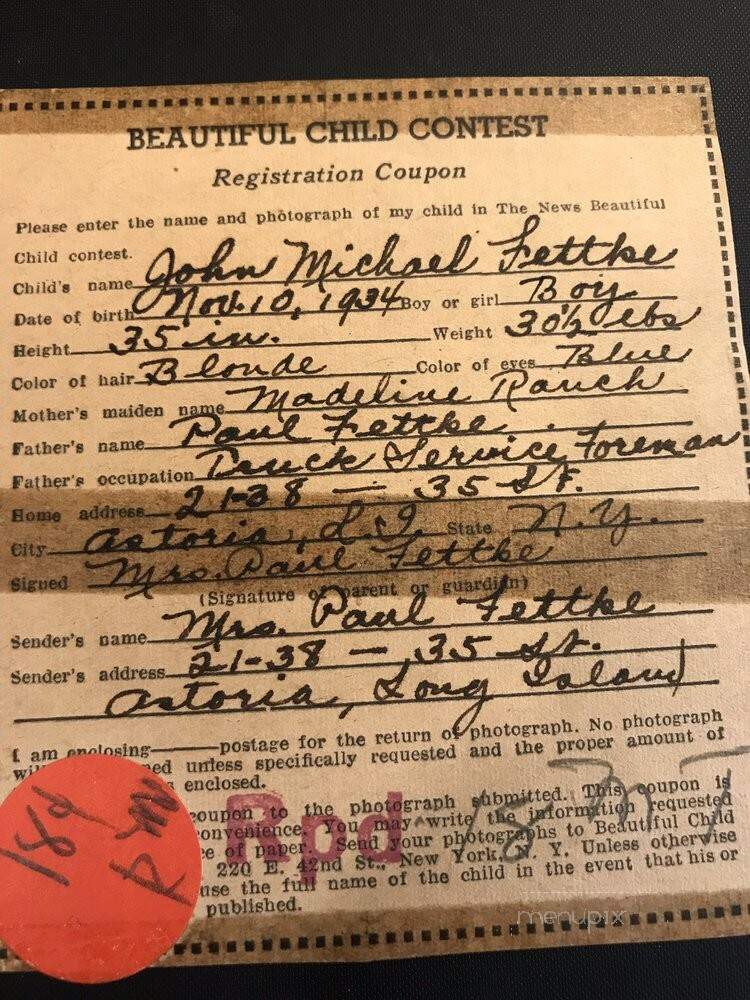 BEAUTIFUL CHILD CONTEST
Registration Coupon
Please enter the name and photograph of my child in The News Beautiful
Child contest.
Child's name John Michael Fettke
Date of birth Nov. 10, 1934 Boy or girl Boy
Height 35 in. Weight 30½ lbs
Color of hair Blonde Color of eyes Blue
Mother's maiden name Madeline Rauch
Father's name Paul Fettke
Father's occupation Truck Service Foreman
Home address 21-38 — 35 St.
City Astoria, L.I. State N.Y.
Signed Mrs. Paul Fettke
(Signature of parent or guardian)
Sender's name Mrs. Paul Fettke
Sender's address 21-38 — 35 St.
Astoria, Long Island
I am enclosing postage for the return of photograph. No photograph
unless specifically requested and the proper amount of
enclosed.
coupon to the photograph submitted. This coupon is
convenience. You may write the information requested
of paper. Send your photographs to Beautiful Child
220 E. 42nd St., New York, N. Y. Unless otherwise
use the full name of the child in the event that his or
published.
Rpd
menupix